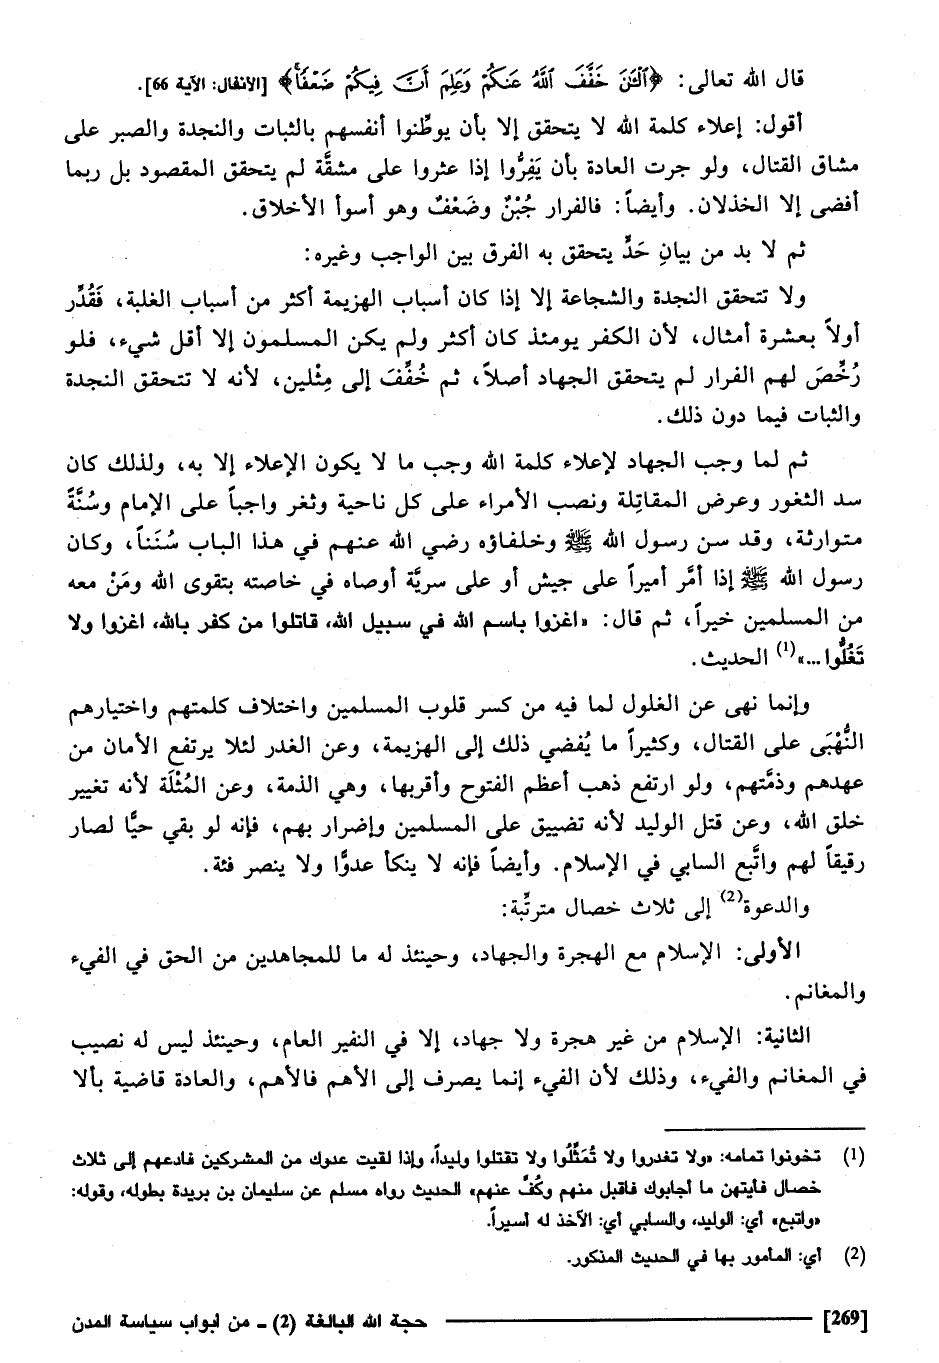 قال الله تعالى: ﴿ٱلْـَٰٔنَ خَفَّفَ ٱللَّهُ عَنكُمْ وَعَلِمَ أَنَّ فِيكُمْ ضَعْفًا﴾ [الأنفال: الآية 66].
أقول: إعلاء كلمة الله لا يتحقق إلا بأن يوطِّنوا أنفسهم بالثبات والنجدة والصبر على
مشاق القتال، ولو جرت العادة بأن يَفِرُّوا إذا عثروا على مشقَّة لم يتحقق المقصود بل ربما
أفضى إلا الخذلان. وأيضاً: فالفرار جُبْنٌ وضَعْفٌ وهو أسوأ الأخلاق.
ثم لا بد من بيانِ حَدٍّ يتحقق به الفرق بين الواجب وغيره:
ولا تتحقق النجدة والشجاعة إلا إذا كان أسباب الهزيمة أكثر من أسباب الغلبة، فَقُدِّر
أولاً بعشرة أمثال، لأن الكفر يومئذ كان أكثر ولم يكن المسلمون إلا أقل شيء، فلو
رُخِّصَ لهم الفرار لم يتحقق الجهاد أصلاً، ثم خُفِّفَ إلى مِثْلين، لأنه لا تتحقق النجدة
والثبات فيما دون ذلك.
ثم لما وجب الجهاد لإعلاء كلمة الله وجب ما لا يكون الإعلاء إلا به، ولذلك كان
سد الثغور وعرض المقاتِلة ونصب الأمراء على كل ناحية وثغر واجباً على الإمام وسُنَّةً
متوارثة، وقد سن رسول الله ﷺ وخلفاؤه رضي الله عنهم في هذا الباب سُنَناً، وكان
رسول الله ﷺ إذا أمَّر أميراً على جيش أو على سريَّة أوصاه في خاصته بتقوى الله ومَنْ معه
من المسلمين خيراً، ثم قال: «اغزوا باسم الله في سبيل الله، قاتلوا من كفر بالله، اغزوا ولا
تَغُلُّوا...»(1) الحديث.
وإنما نهى عن الغلول لما فيه من كسر قلوب المسلمين واختلاف كلمتهم واختيارهم
النُّهْبَى على القتال، وكثيراً ما يُفضي ذلك إلى الهزيمة، وعن الغدر لئلا يرتفع الأمان من
عهدهم وذمَّتهم، ولو ارتفع ذهب أعظم الفتوح وأقربها، وهي الذمة، وعن المُثْلَة لأنه تغيير
خلق الله، وعن قتل الوليد لأنه تضييق على المسلمين وإضرار بهم، فإنه لو بقي حيًّا لصار
رقيقاً لهم واتَّبع السابي في الإسلام. وأيضاً فإنه لا ينكأ عدوًّا ولا ينصر فئة.
والدعوة(2) إلى ثلاث خصال مترتِّبة:
الأولى: الإسلام مع الهجرة والجهاد، وحينئذ له ما للمجاهدين من الحق في الفيء
والمغانم.
الثانية: الإسلام من غير هجرة ولا جهاد، إلا في النفير العام، وحينئذ ليس له نصيب
في المغانم والفيء، وذلك لأن الفيء إنما يصرف إلى الأهم فالأهم، والعادة قاضية بألا
(1) تخونوا تمامه: «ولا تغدروا ولا تُمَثِّلُوا ولا تقتلوا وليداً، وإذا لقيت عدوك من المشركين فادعهم إلى ثلاث
خصال فأيتهن ما أجابوك فاقبل منهم وكُفَّ عنهم» الحديث رواه مسلم عن سليمان بن بريدة بطوله، وقوله:
«واتبع» أي: الوليد، والسابي أي: الآخذ له أسيراً.
(2) أي: المأمور بها في الحديث المذكور.
[269] حجة الله البالغة (2) ـ من أبواب سياسة المدن